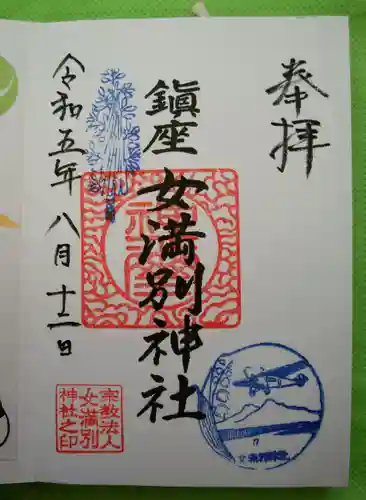 奉拝
鎮座
女満別神社
令和五年八月十二日
宗教法人
女満別
神社之印